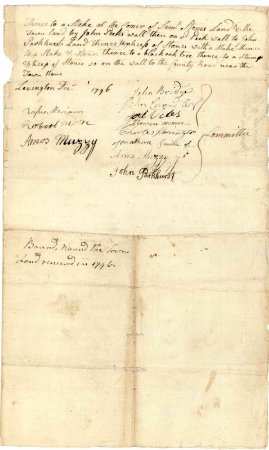 thence to a Stake at the Corner of Stones Land & the
Town land by John Parks wall then on sd Park wall to John
Parkhursts Land thence to a heap of Stones with a Stake thence
to a Stake & Stones thence to a black oak tree thence to a Stump
& heap of Stones so on the wall to the County Road near the
Lexington 1796
John Bridge
Rufus Merriam
Joel Viles
Robert
Charles Harrington
Committee
Amos Muzzy
Jonathan Smith
Amos Muzzy
John Parkhurst
Bounds round the Town
Land renewed in 1796